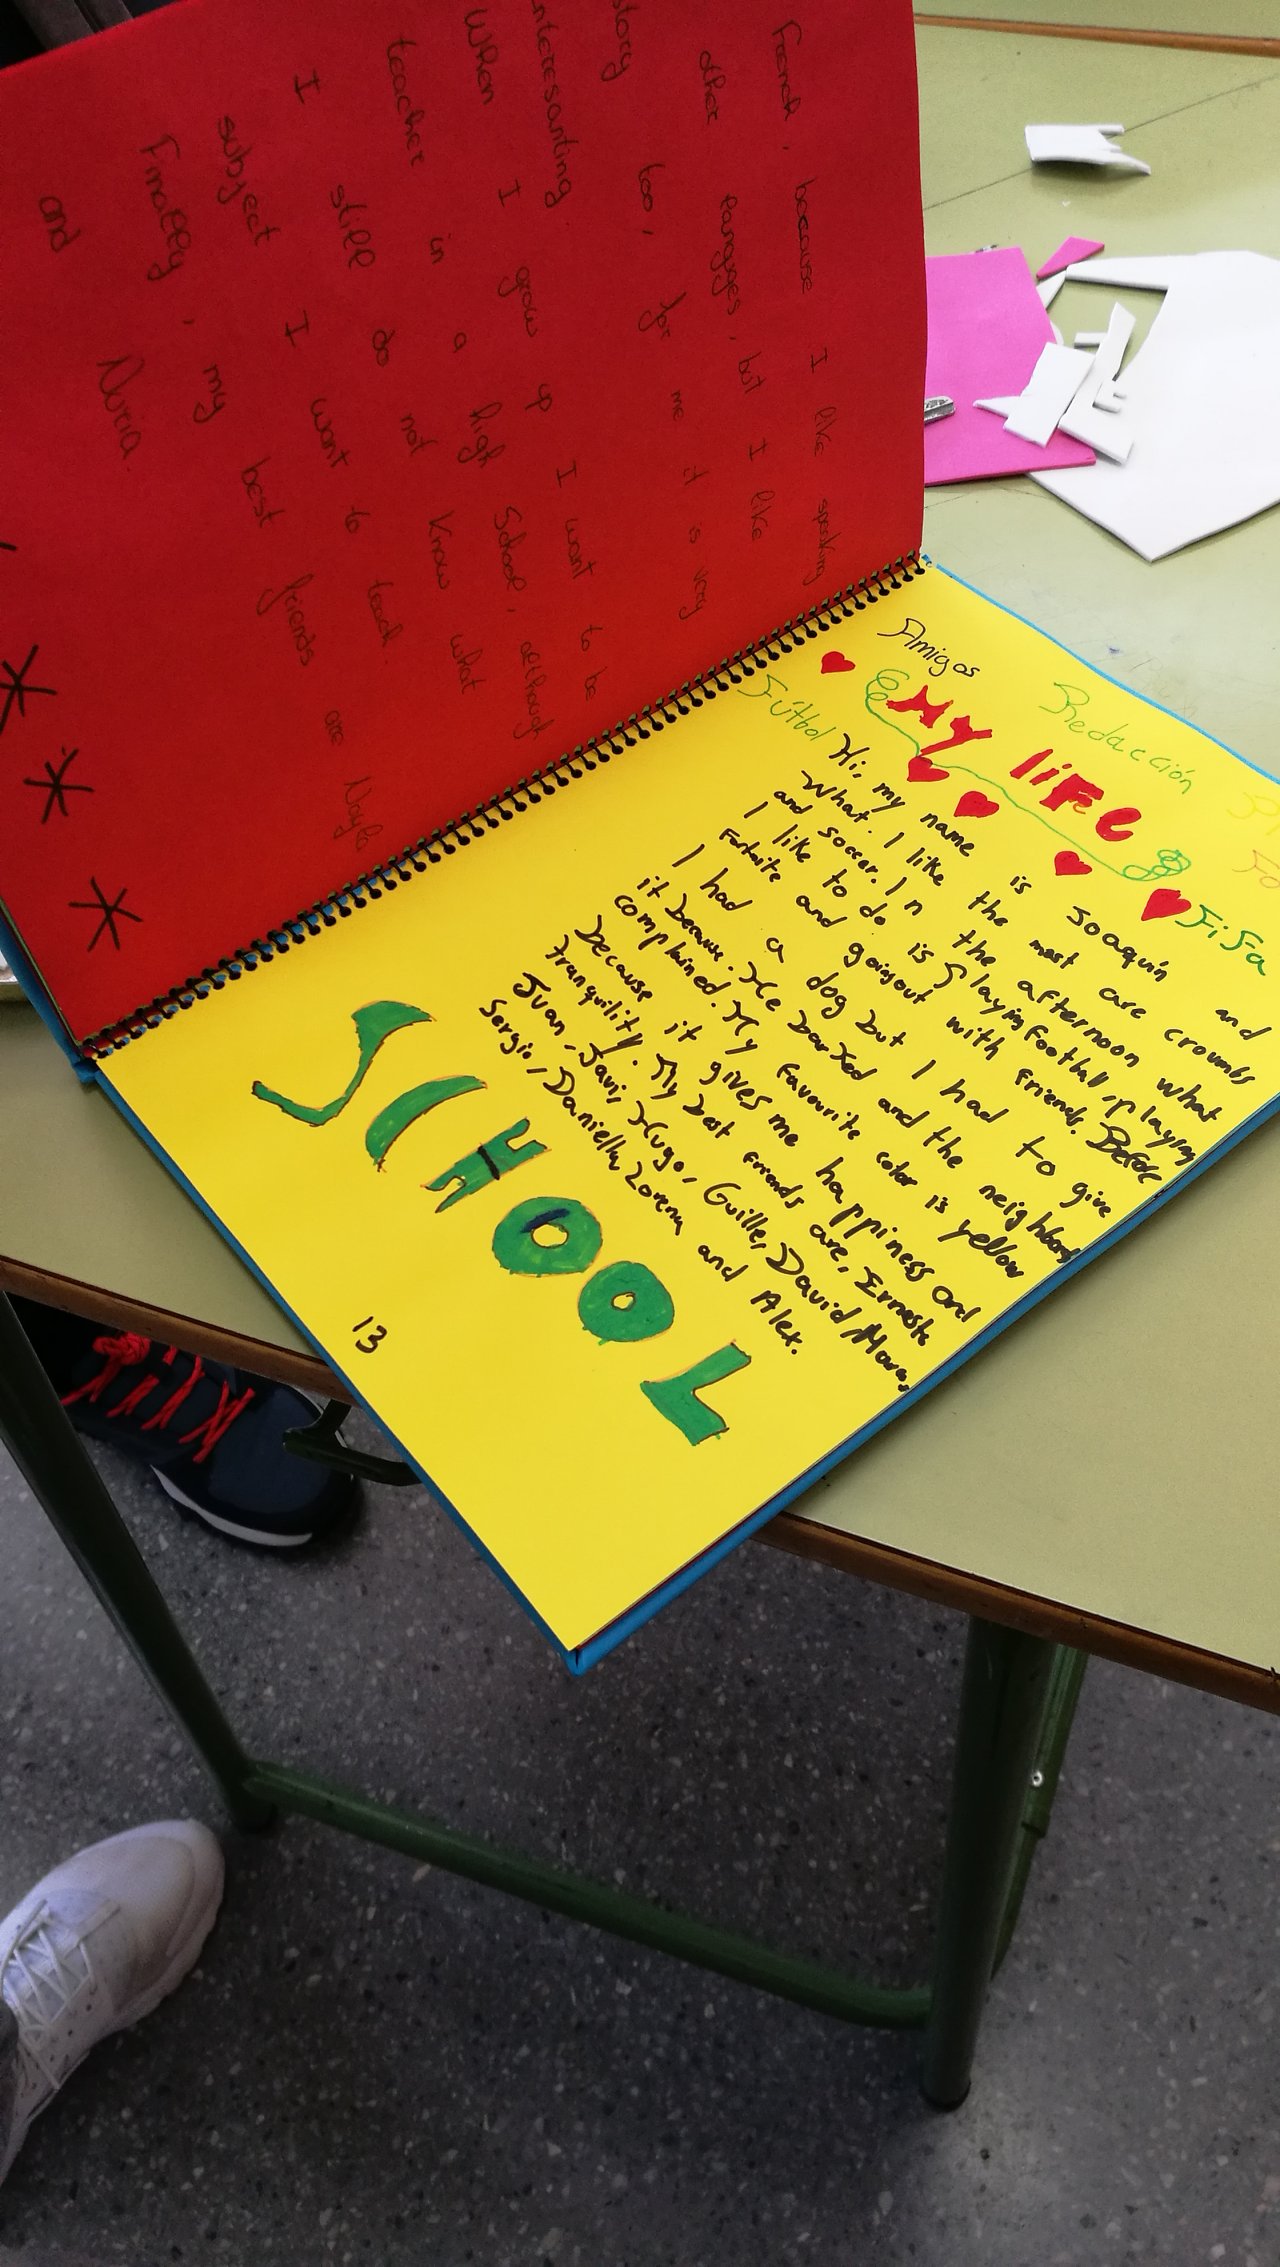 French, because I like speaking
other languges, but I like
story too, for me it is very
interesanting
When I grow up I want to be
teacher in a high School, although
I still do not know what
subject I want to teach.
Finally, my best friends are Nayla
and Nuria.
Amigos
Redacción
My liFe
Fútbol
FiFa
Hi, my name is Joaquín and
What. I like the most are croumbs
and soccer. In the afternoon what
I like to do is Playing Football, playing
Fortnite and going out with Friends. Before
I had a dog but I had to give
it because. He barked and the neighbors
complained. My Favourite color is yellow
because it gives me happiness and
tranquility. My best Friends are, Ernesto
Juan, Javi, Hugo, Guille, David, Mara,
Sergio, Daniella, Lorena and Alex.
SCHOOL
13